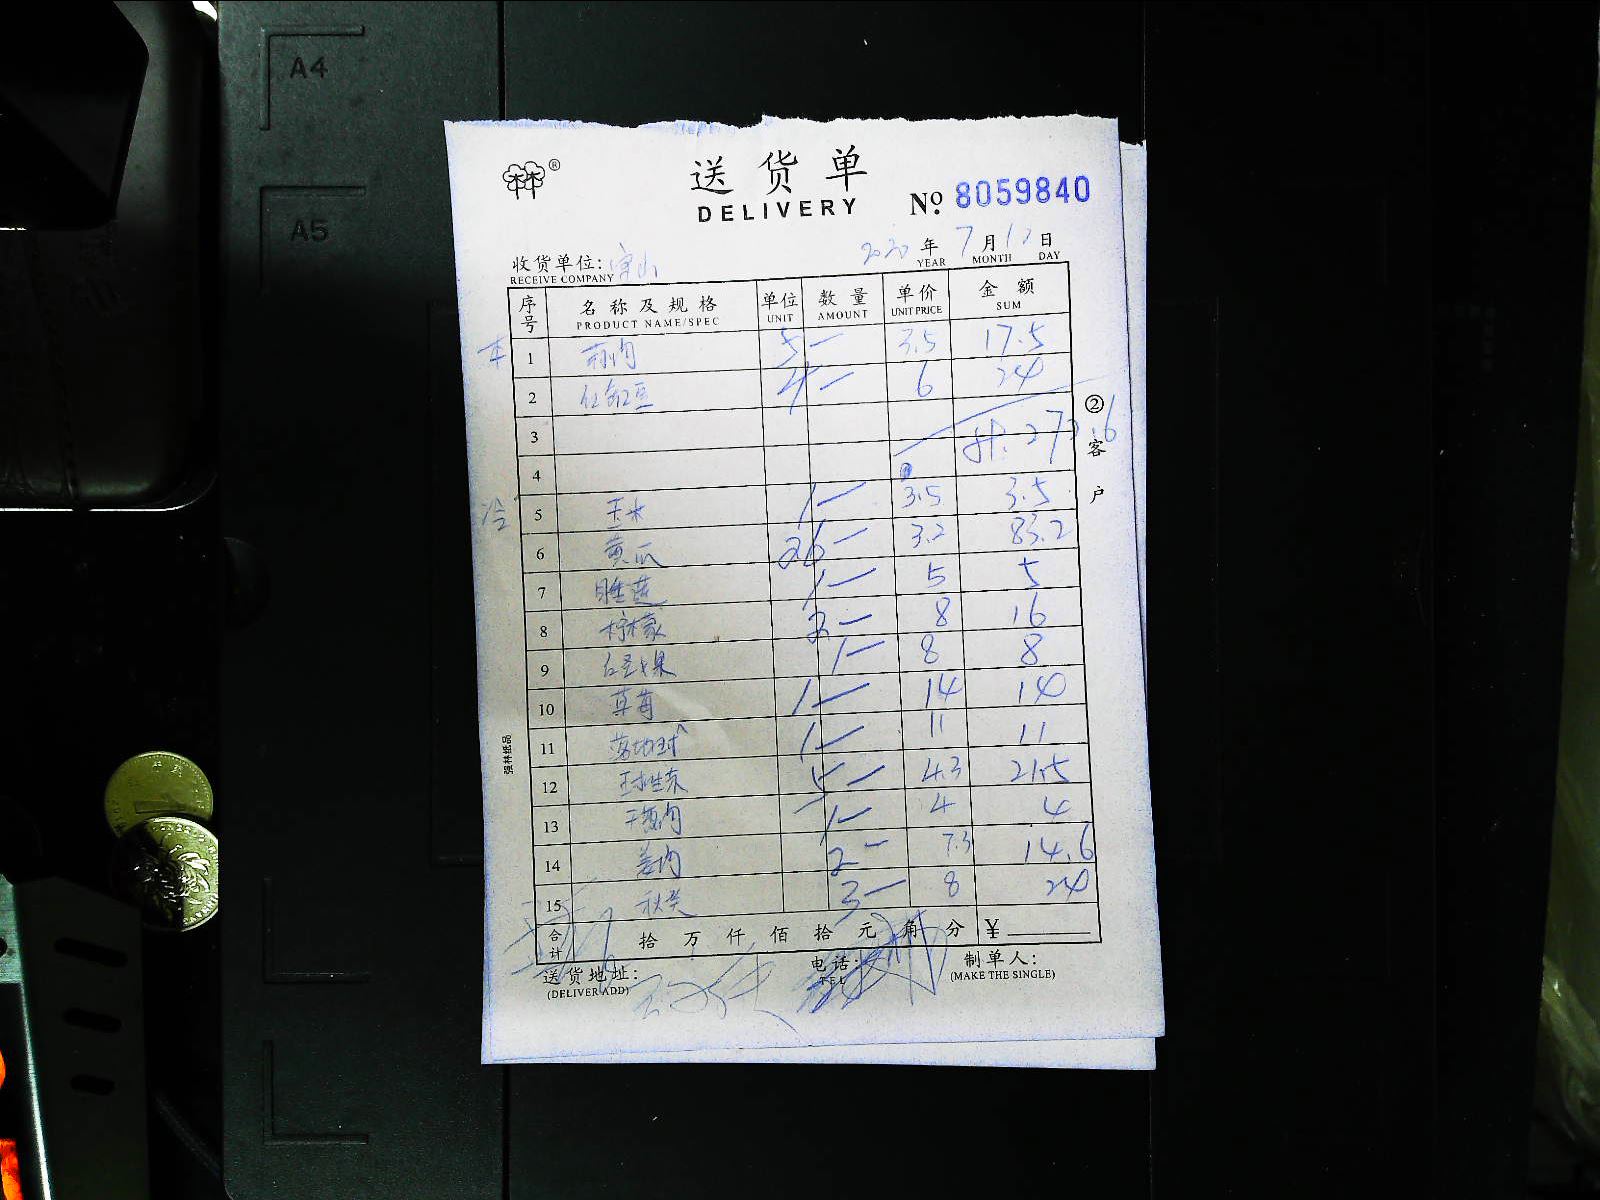 A4
A5
®
送货单
DELIVERY
No. 8059840
2020 年 7 月 12 日
YEAR MONTH DAY
收货单位:
RECEIVE COMPANY
序号 名称及规格 单位 数量 单价 金额
PRODUCT NAME/SPEC UNIT AMOUNT UNIT PRICE SUM
1 5— 3.5 17.5
2 红豇豆 4— 6 24
3 计. 273.6
4
冷 5 玉米 1— 3.5 3.5
6 黄瓜 26— 3.2 83.2
7 睡莲 1— 5 5
8 柠檬 2— 8 16
9 1— 8 8
10 草莓 1— 14 14
11 1— 11 11
12 5— 4.3 21.5
13 1— 4 4
14 2— 7.3 14.6
15 秋葵 3— 8 24
合计 拾 万 仟 佰 拾 元 角 分 ¥
送货地址:
(DELIVER ADD)
电话:
TEL
制单人:
(MAKE THE SINGLE)
②客户
强林纸品